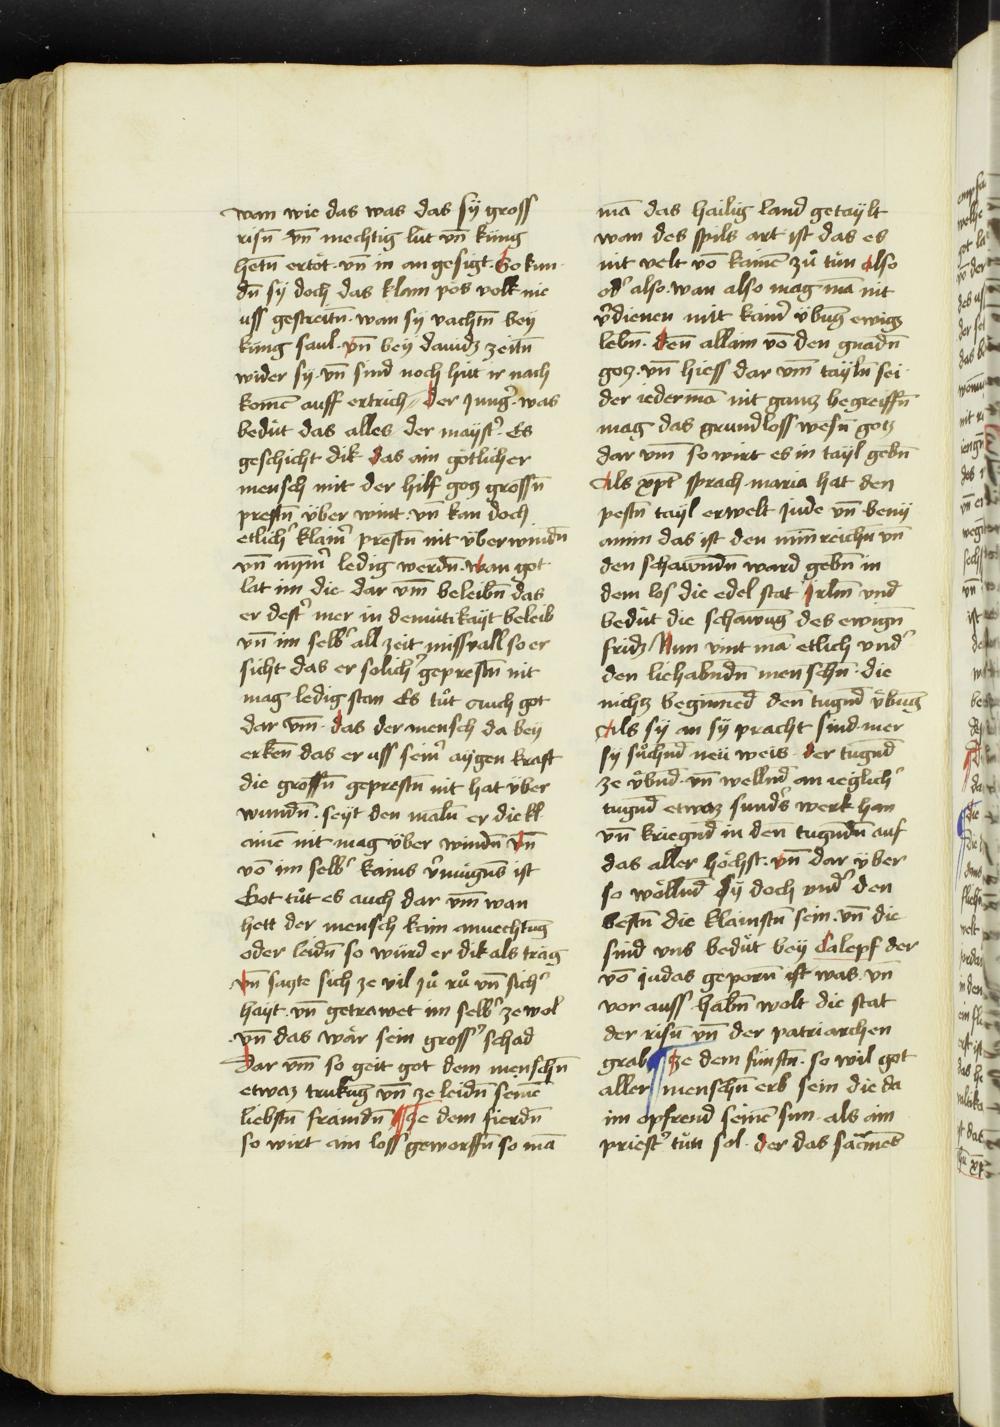 wan wie das was das sÿ gross
risn̄ vn̄ mechtig lüt vn̄ küng
hetn̄ ertöt · vn̄ in an gesigt · So kun
dn̄ sÿ doch das klain pös volk nie
uss gestreitn̄ · wan sÿ vachtn̄ beÿ
küng saul · vn̄ beÿ dauidz zeitn̄
wider sÿ · vn̄ sind noch hüt ir nach
komē auff ertrich der jungͤ · was
bedüt das alles der maÿstͤ · Es
geschicht dik das ain götlicher
mensch mit der hilf gotz grossn̄
prestn̄ über wint · vn̄ kan doch
etlichͤ klainͤ prestn̄ nit überwindn̄
vn̄ ledig werdn̄ · wan got
lat im die dar vm̄ beleibn̄ das
er destͤ mer in demütikaÿt beleib
vn̄ im selbͤ all zeit missvall so er
sicht das er solichͤ geprestn̄ nit
mag ledig stan Es tůt auch got
dar vm̄ · das der mensch da beÿ
erken̄ das er uss seinͤ aÿgen kraft
die grossn̄ geprestn̄ nit hat über
wundn̄ · seÿt den maln̄ er die kl
ainē nit mag über windn̄ vn̄
vō im selbͤ kains vͤmügn̄s ist
Got tůt es auch dar vm̄ wan
hett der mensch kain anuechtūg
oder leidn̄ so würd er dik als träg
vn̄ sagte sich ze vil zů rů vn̄ sichͤ
haÿt · vn̄ getrawet im selbͤ ze wol
vn̄ das wär sein grossͤ schad
Dar vm̄ so geit got dem menschn̄
etwaz trukūg vn̄ ze leidn̄ seinē
liebstn̄ fraindn̄ ¶ Ze dem fierdn̄
so wirt ain loss geworffn̄ so mā
mā das hailig land getaÿlt
wan des spils art ist das es
nit velt vō kainē zů tůn also
odͤ also · wan also mag mā nit
vͤdienen mit kainͤ übūg ewigz
lebn̄ · den̄ allain vō den gnadn̄
gotz · vn̄ hiess dar vm̄ taÿln̄ sei
der iederman̄ nit gantz begreiffn̄
mag das grundloss wesn̄ gotz
dar vm̄ so wirt es in taÿl gebn̄
Als xp̄t sprach maria hat den
pestn̄ taÿl erwelt jude vn̄ benÿ
amin das ist den vn̄
den schawndn̄ ward gebn̄ in
dem los die edel stat jrlm̄ vnd
bedüt die schawūg des ewign̄
fridz Nun vint mā etlich vndͤ
den liebhabndn̄ menschn̄ · die
nichtz beginned den̄ tugnd übūg
Als sÿ an sÿ pracht sind mer
sÿ sůchnd neü weis · der tugnd
ze übnd · vn̄ wellnd an ieglichͤ
tugnd etwaz sundͤs werk han
vn̄ kriegnd in den tugndn̄ auf
das aller höchst · vn̄ dar über
so wöllnd sÿ doch vndͤ den
bestn̄ die klainstn̄ sein · vn̄ die
sind vns bedüt beÿ Calepf der
vō judas geporn̄ ist was · vn̄
vor auss habn̄ wolt die stat
der risn̄ vn̄ der patriarchen
grab ¶ Ze dem fünftn̄ · so wil got
aller menschn̄ erb sein die da
im opfrend seinē sun · als ain
priestͤ tůn sol · der das sacm̄es